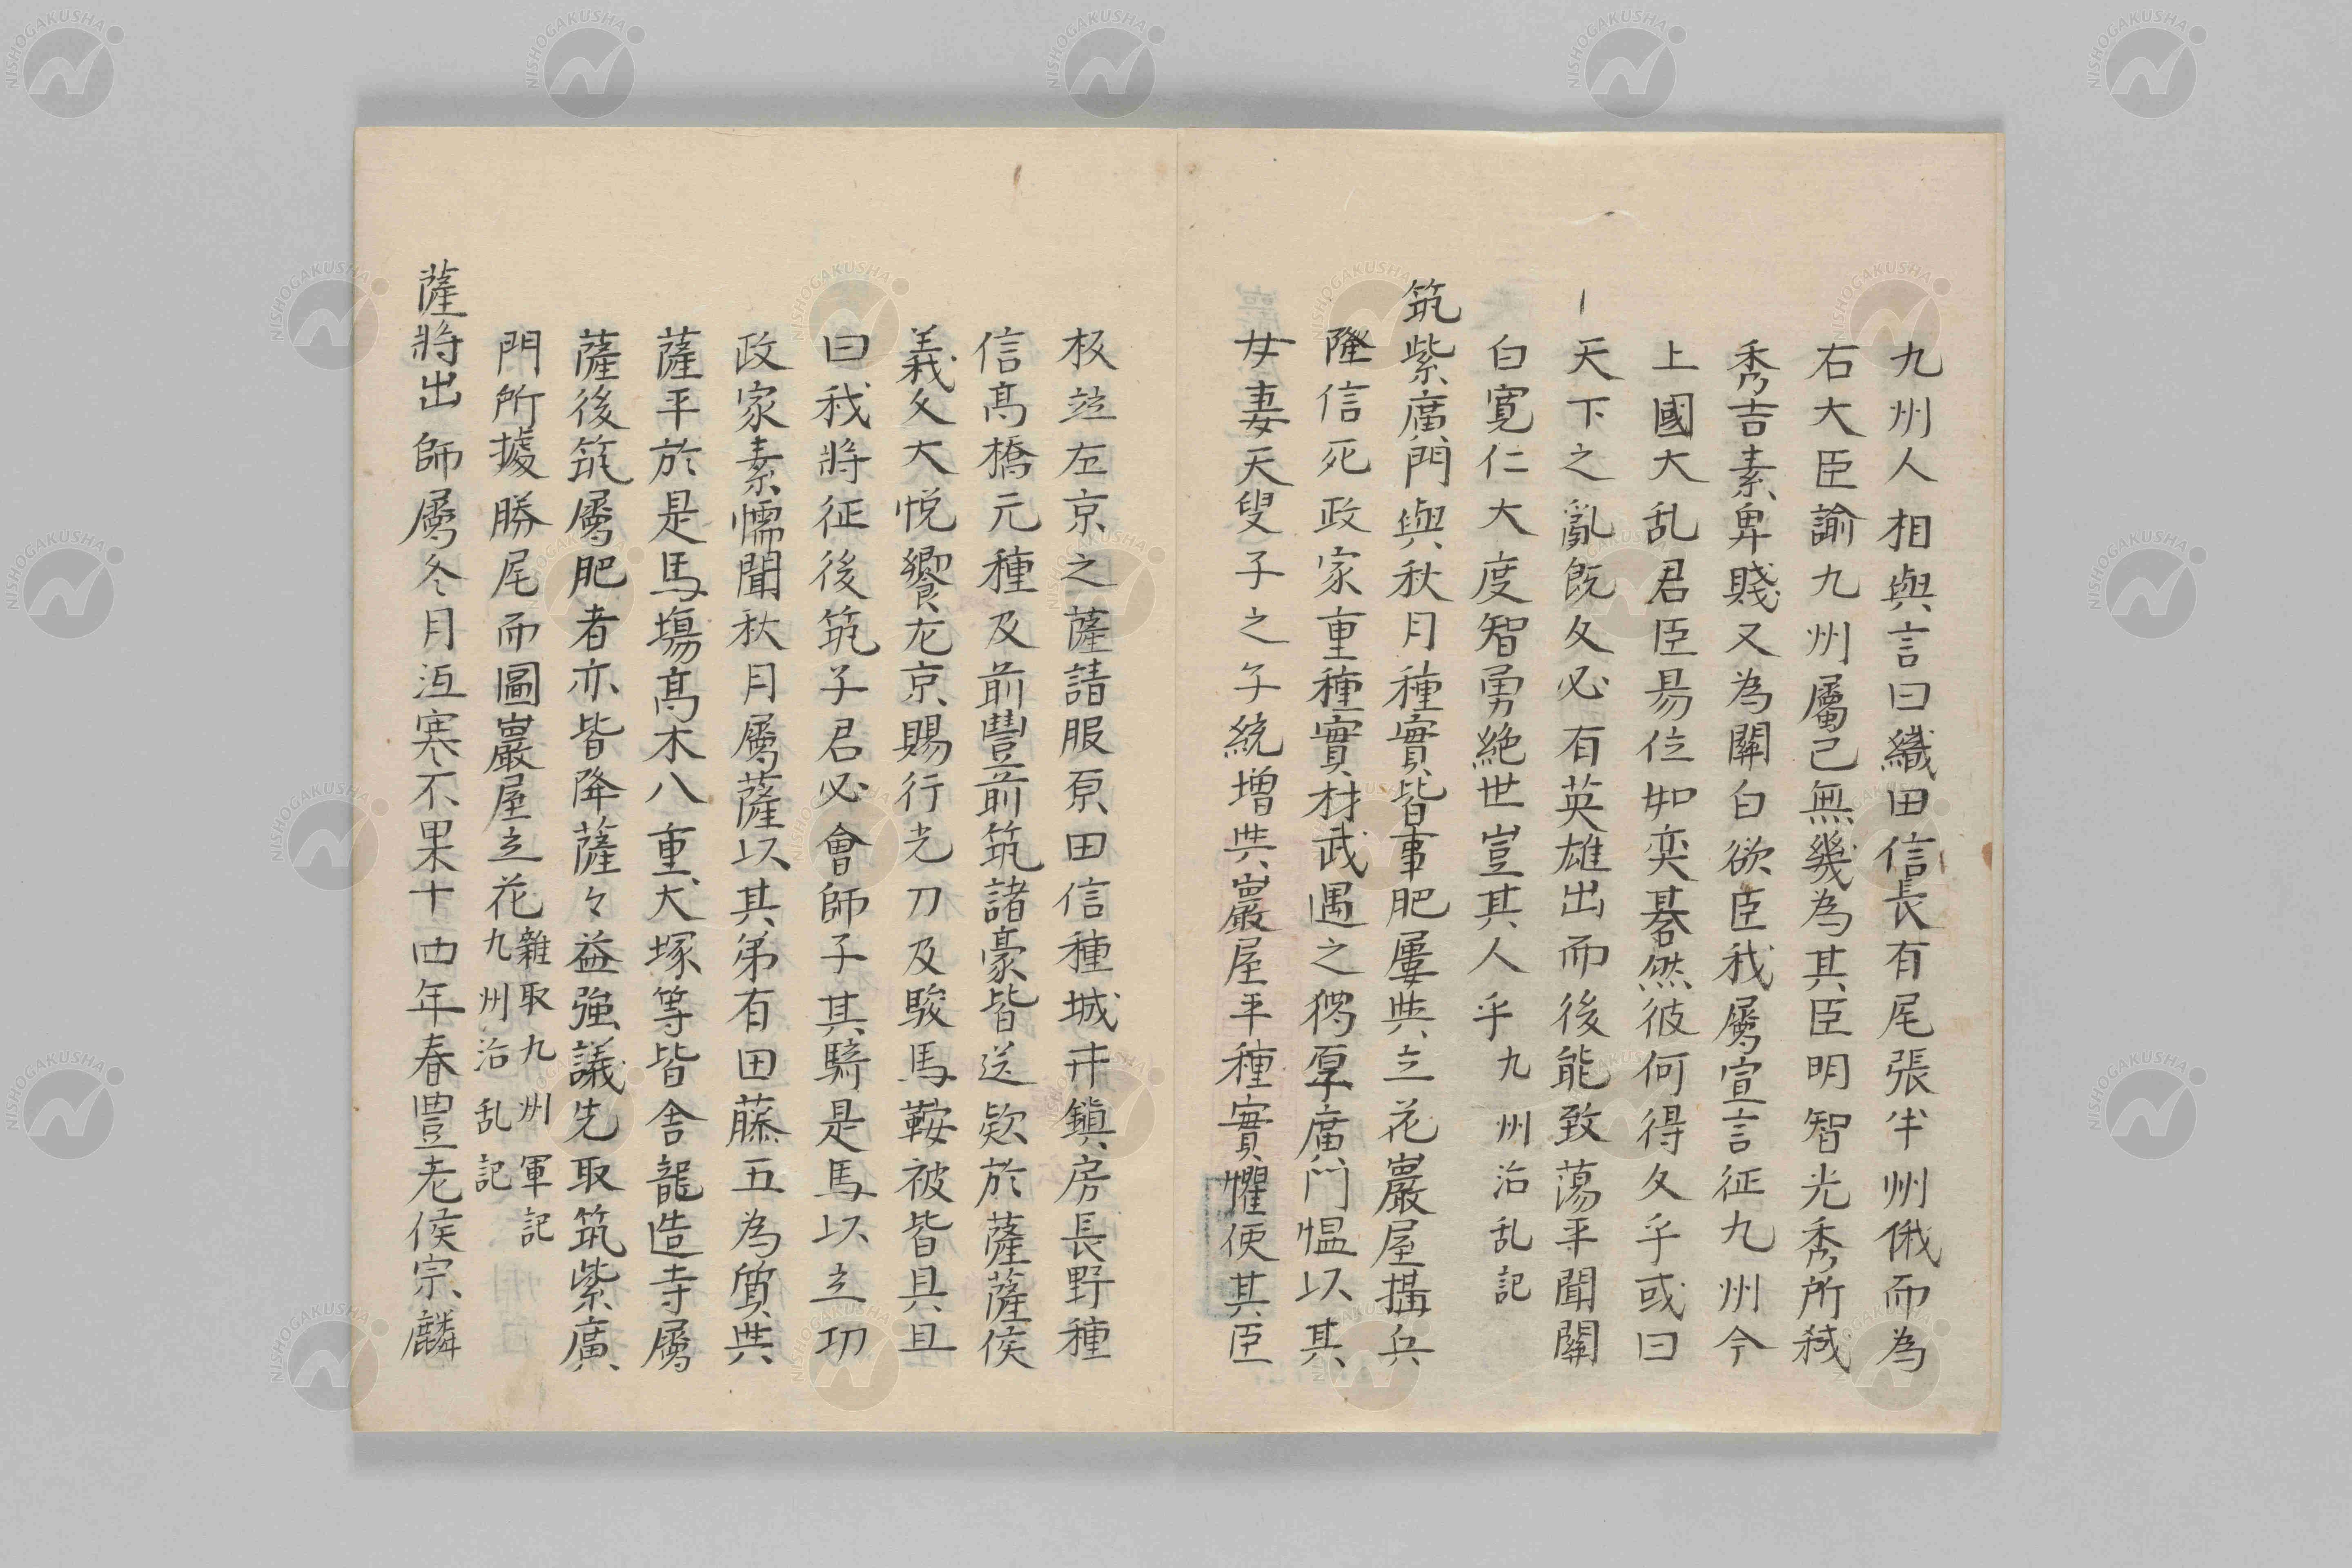 九州人相與言曰織田信長有尾張半州俄而為
右大臣諭九州屬己無幾為其臣明智光秀所弑
秀吉素卑賤又為關白欲臣我屬宣言征九州今
上國大乱君臣易位如奕碁然彼何得久乎或曰
天下之亂既久必有英雄出而後能致蕩平聞關
白寬仁大度智勇絶世豈其人乎九州治乱記
筑紫廣門與秋月種實皆事肥屢與立花巖屋搆兵
隆信死政家重種實材武遇之獨厚廣門慍以其
女妻天叟子之子統増與巖屋平種實懼使其臣
板並左京之薩請服原田信種城井鎮房長野種
信髙橋元種及前豐前筑諸豪皆送欵於薩薩侯
義久大悦饗左京賜行光刀及駿馬鞍被皆具且
曰我將征後筑子君必會師子其騎是馬以立功
政家素懦聞秋月屬薩以其弟有田藤五為質與
薩平於是馬塲髙木八重犬塚等皆舍龍造寺屬
薩後筑屬肥者亦皆降薩々益強議先取筑紫廣
門所據勝尾而圖巖屋立花雜取九州軍記
九州治乱記
薩將出師屬冬月沍寒不果十四年春豊老侯宗麟
NISHOGAKUSHA